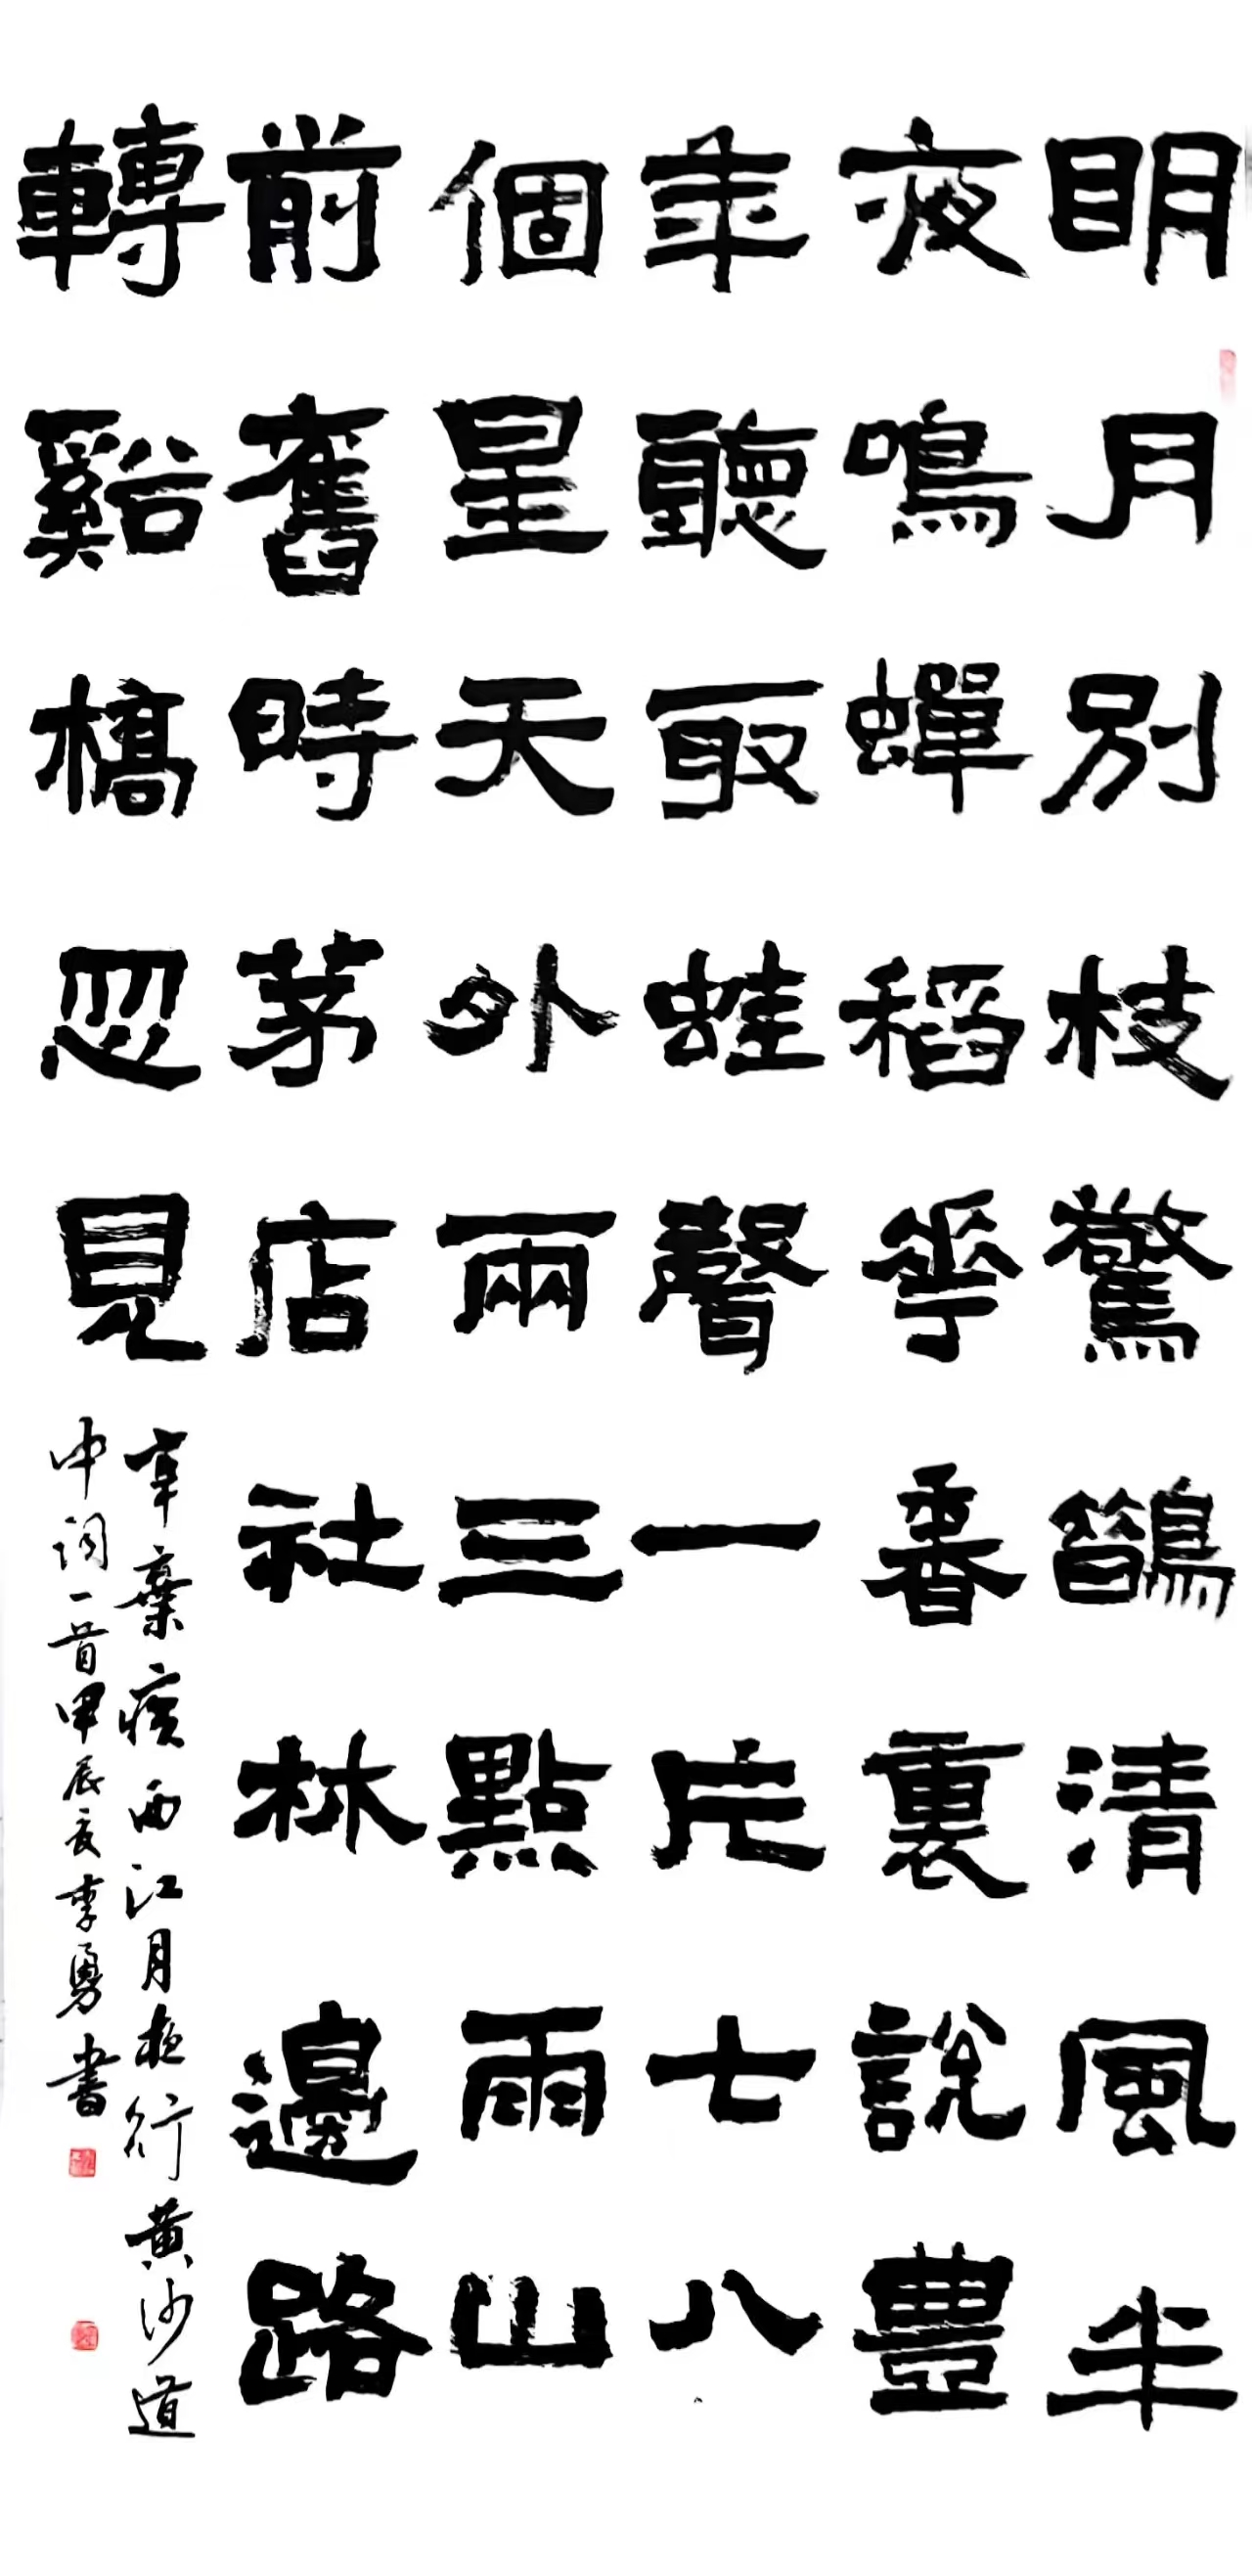 明月別枝驚鵲清風半
夜鳴蟬稻華香裏說豐
年聽取蛙聲一片七八
個星天外兩三點雨山
前舊時茅店社林邊路
轉谿橋忽見
辛棄疾西江月夜行黃沙道
中詞一首甲辰夏李勇書